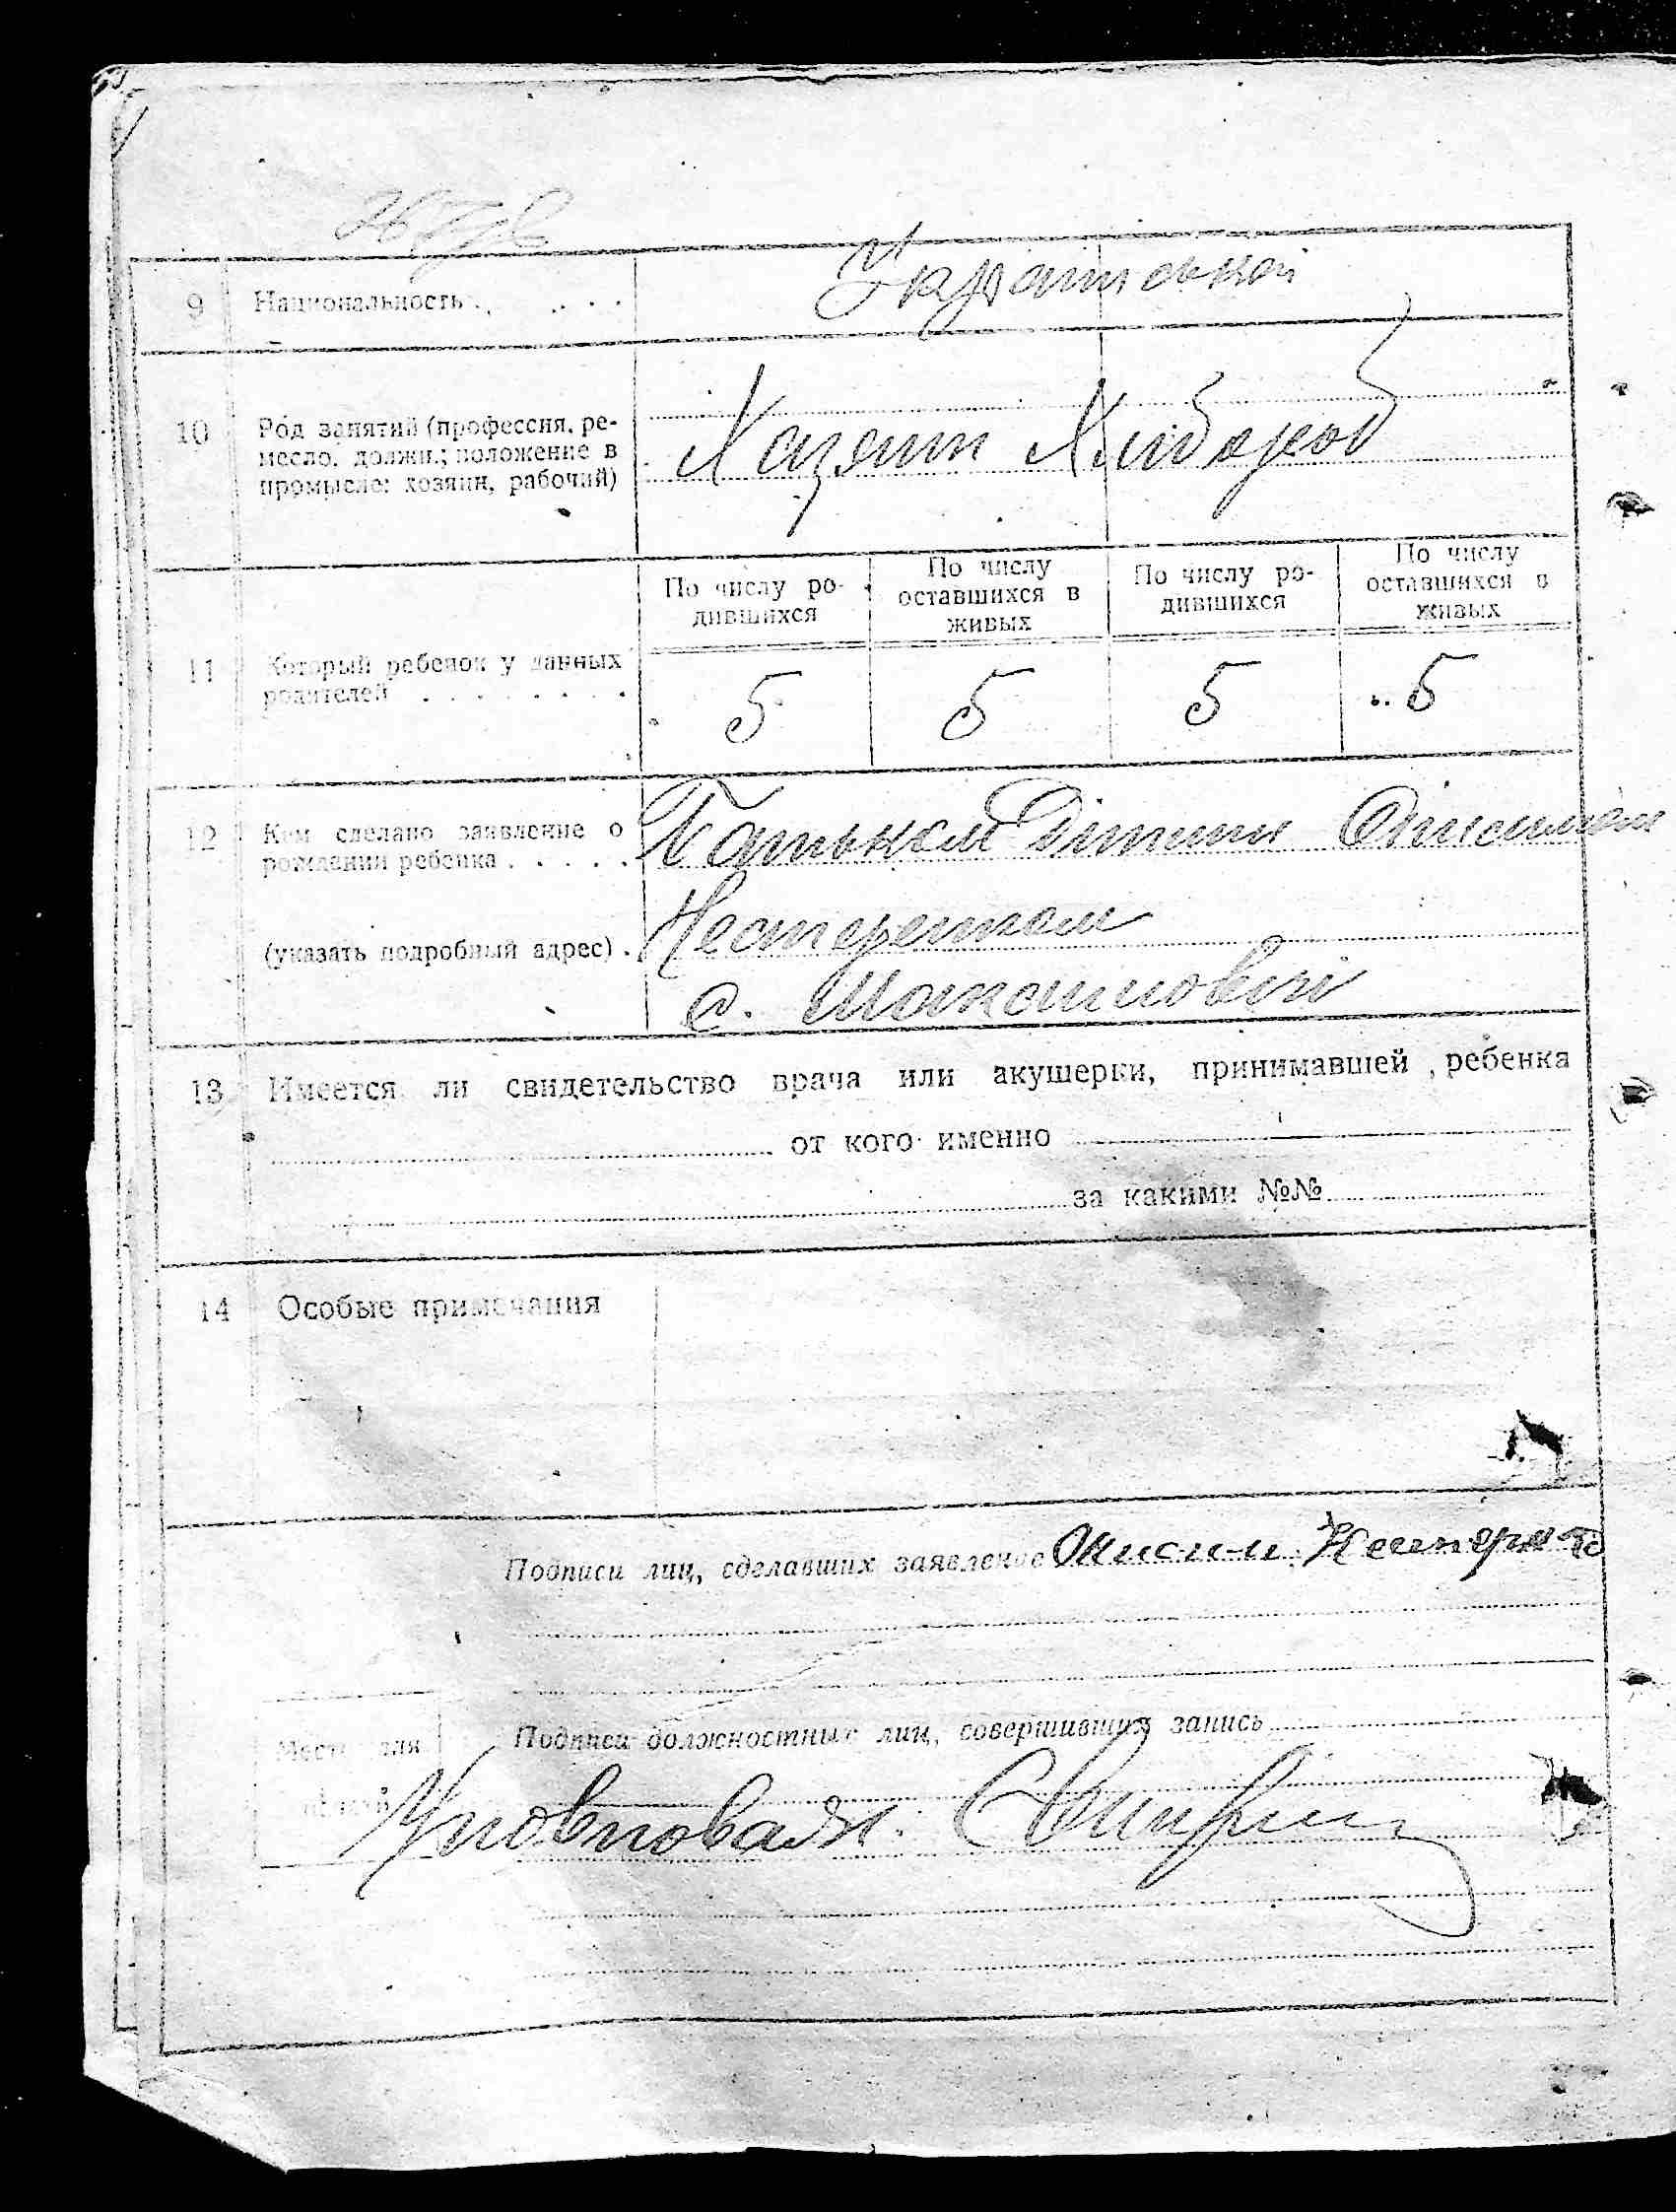 Української
9 Национальность
10 Род занятий (профессия, ре-
месло, должн.; положение в
промысле: хозяин, рабочий)
Хазяин Хлібороб
По числу ро-
дившихся
По числу
оставшихся в
живых
По числу ро-
дившихся
По числу
оставшихся в
живых
11 Который ребенок у данных
родителей
5 5 5 5
12 Кем сделано заявление о
рождении ребенка
Батьком Дитини Онисимом
(указать подробный адрес)
Нестеренком
с. Максимовкі
13 Имеется ли свидетельство врача или акушерки, принимавшей ребенка
от кого именно
за какими №№
14 Особые примечания
Подписи лиц, сделавших заявление Онисим Нестеренко
Подписи должностных лиц, совершивших запись
Место для
печати
Уповноваж.